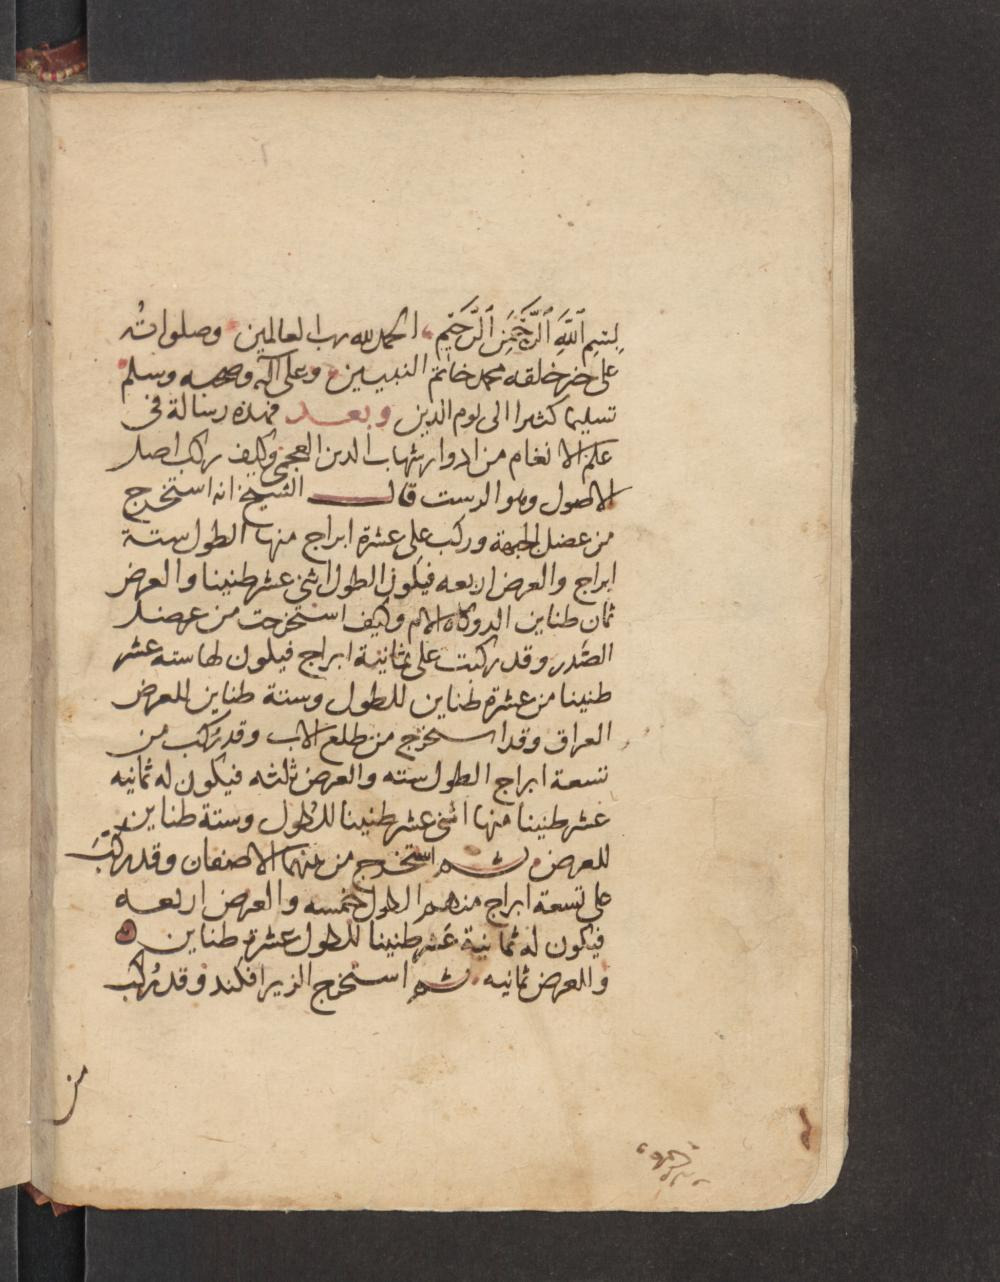 بِسْمِ ٱللَّهِ ٱلرَّحْمَنِ ٱلرَّحِيمِ الحمد لله رب العالمين وصلواته
على خير خلقه محمد خاتم النبيين وعلى آله وصحبه وسلم
تسليما كثيرا الى يوم الدين وبعد فهذه رسالة فى
علم الانغام من ادوار شهاب الدين العجمى وكيف ركب اصل
الاصول وهو الرست قال الشيخ انه استخرج
من عضل الجبهة وركب على عشرة ابراج منها الطول ستة
ابراج والعرض اربعه فيكون الطول اثنى عشر طنينا والعرض
ثمان طناين الدوكاه الام وكيف استخرجت من عضل
الصدر وقد ركبت على ثمانية ابراج فيكون لها سته عشر
طنينا من عشرة طناين للطول وستة طناين للعرض
العراق وقد استخرج من طلع الاب وقد رُكب من
تسعة ابراج الطول سته والعرض ثلثه فيكون له ثمانيه
عشر طنينا منها اثنى عشر طنينا للطول وستة طناين
للعرض ثم استخرج من بينهما الاصفهان وقد ركب
على تسعة ابراج منهم الطول خمسه والعرض اربعه
فيكون له ثمانية عشر طنينا للطول عشرة طناين
وللعرض ثمانيه ثم استخرج الزيرافكند وقد رُكب
من